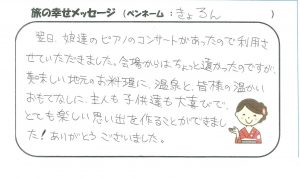 旅の幸せメッセージ (ペンネーム：きょろん)
翌日、娘達のピアノのコンサートがあったので利用さ
せていただきました。会場からはちょっと遠かったのですが、
美味しい地元のお料理に、温泉と、皆様の温かい
おもてなしに、主人も子供達も大喜びで、
とても楽しい思い出を作ることができまし
た！ありがとうございました。